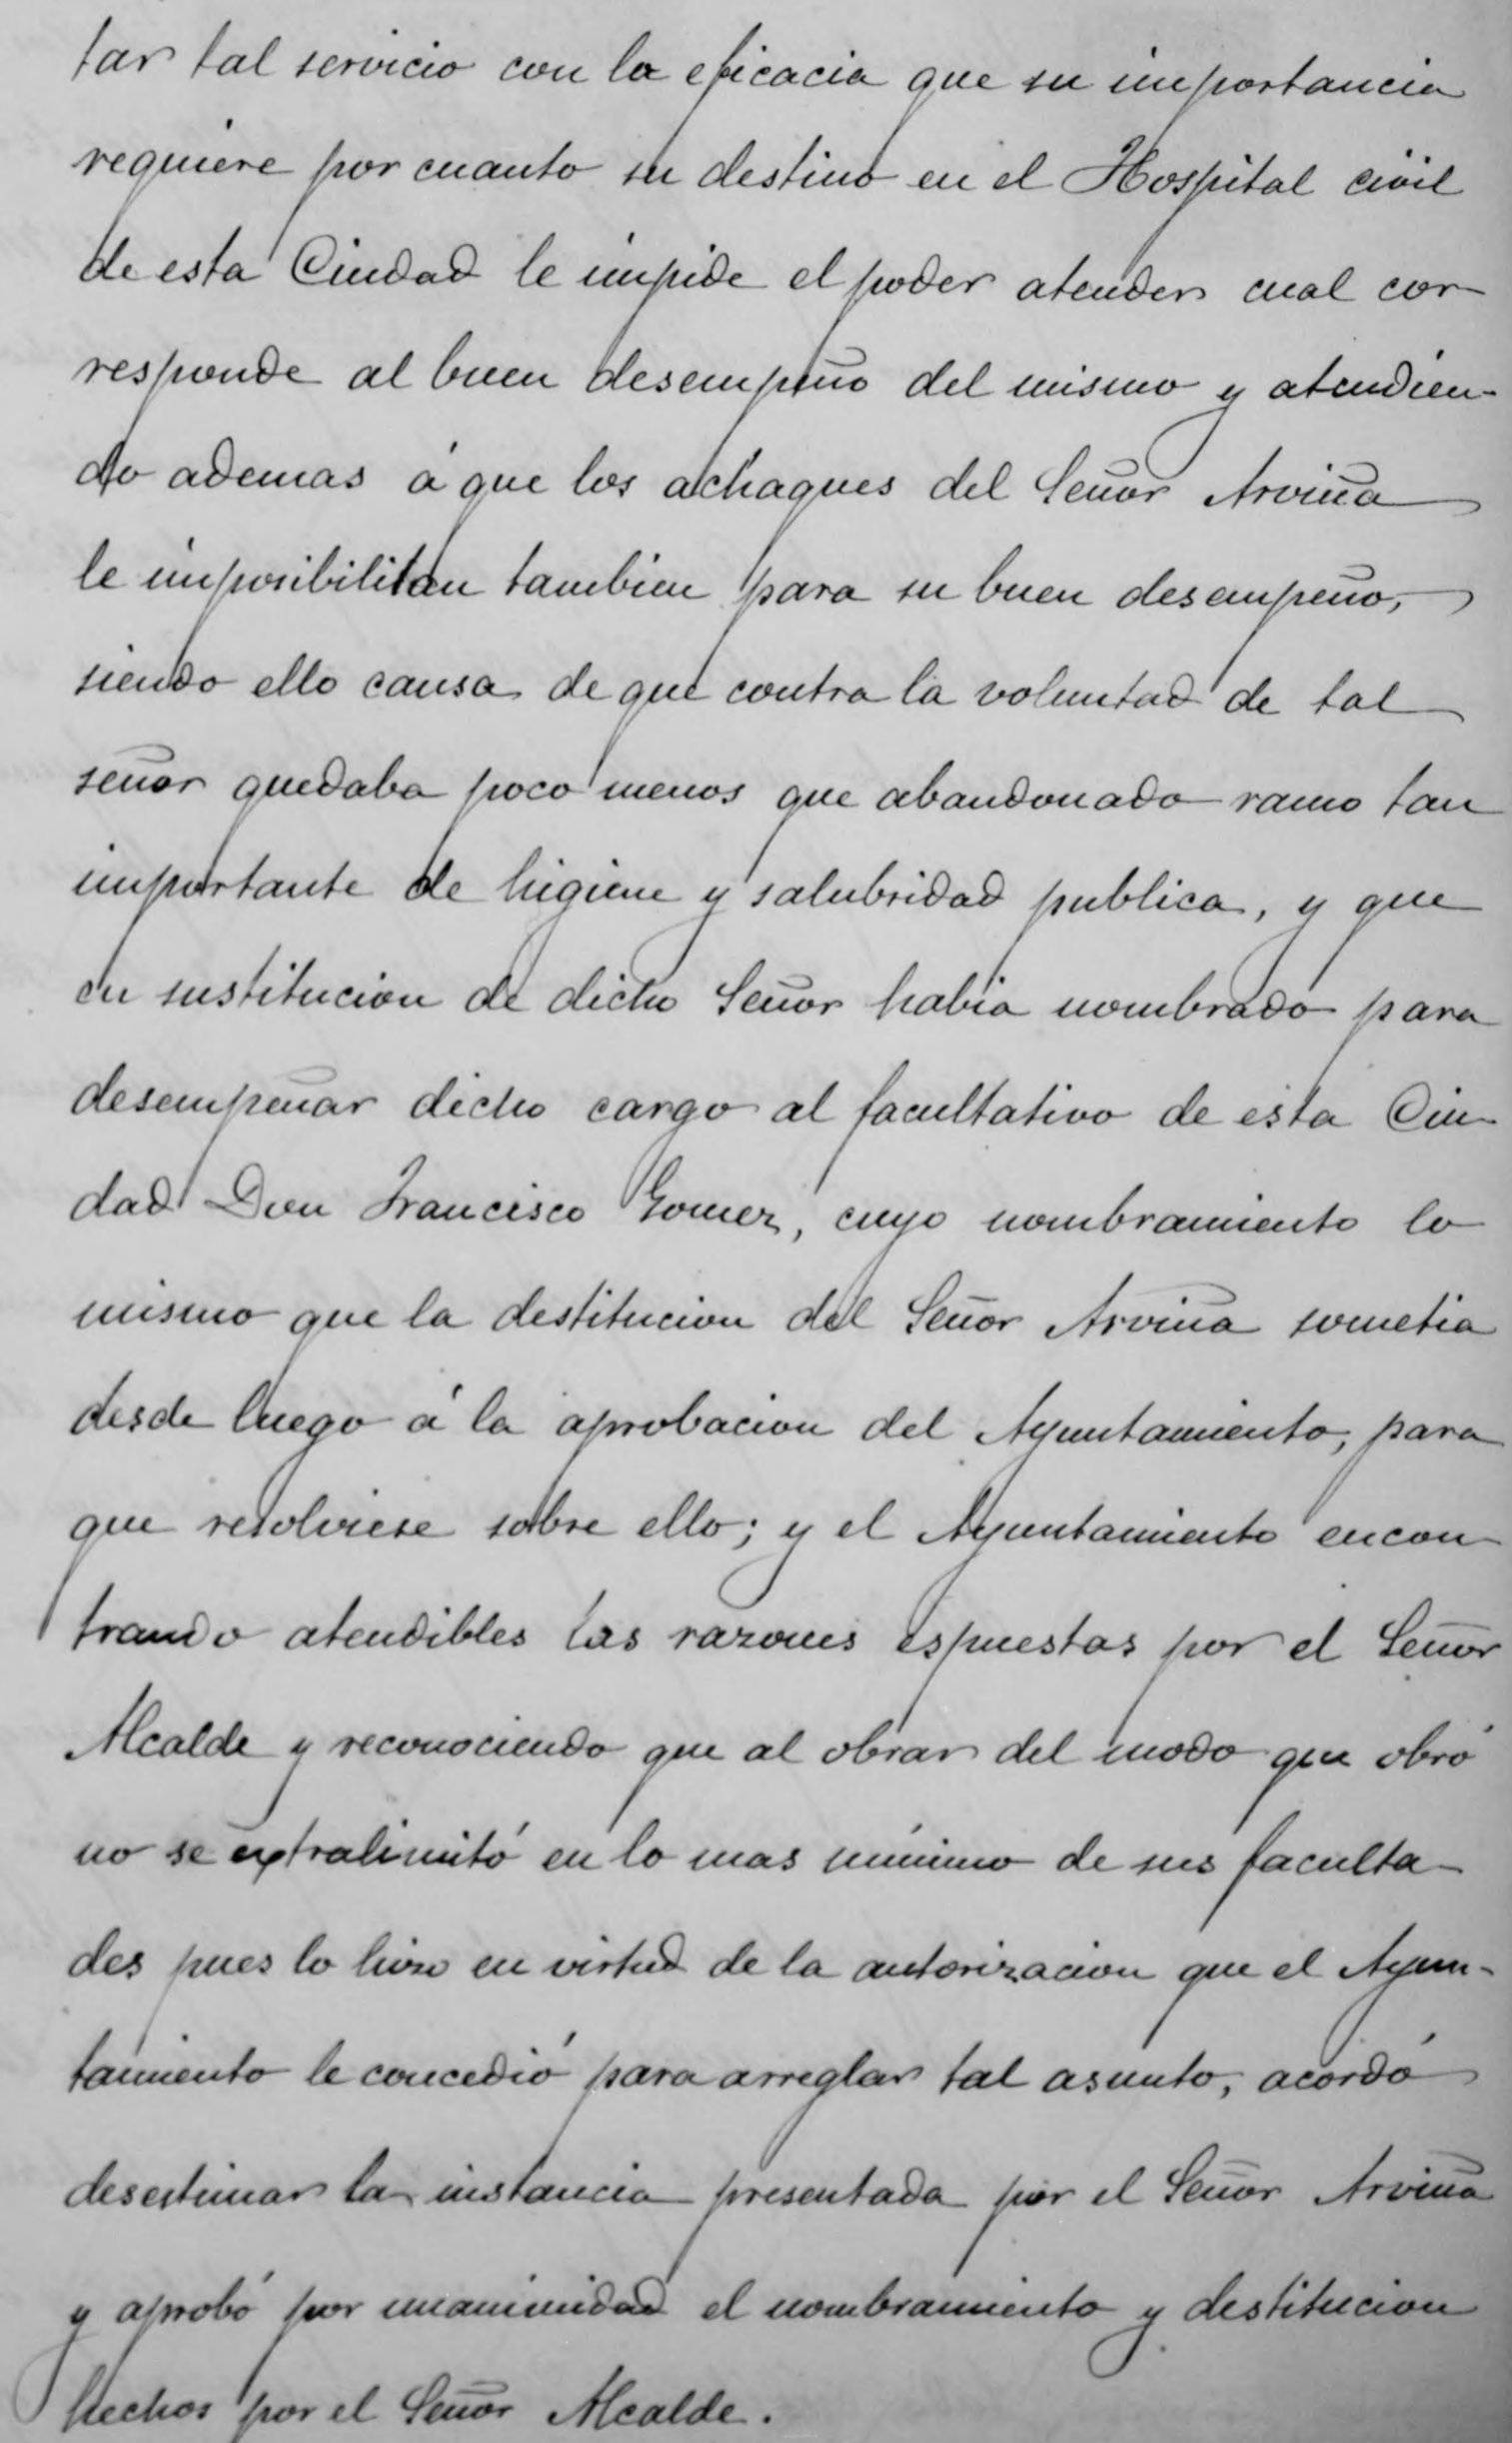 tar tal servicio con la eficacia que su importancia
requiere por cuanto su destino en el Hospital civil
de esta Ciudad le impide el poder atender cual cor-
responde al buen desempeño del mismo y atendien-
do ademas á que los achaques del Señor Arviña
le imposibilitan tambien para su buen desempeño,
siendo ello causa de que contra la voluntad de tal
señor quedaba poco menos que abandonado ramo tan
importante de higiene y salubridad publica, y que
en sustitucion de dicho Señor habia nombrado para
desempeñar dicho cargo al facultativo de esta Ciu-
dad Don Francisco Gomez, cuyo nombramiento lo
mismo que la destitucion del Señor Arviña sometia
desde luego á la aprobacion del Ayuntamiento, para
que resolviese sobre ello; y el Ayuntamiento encon-
trando atendibles las razones espuestas por el Señor
Alcalde y reconociendo que al obrar del modo que obró
no se extralimitó en lo mas minimo de sus faculta-
des pues lo hizo en virtud de la autorizacion que el Ayun-
tamiento le concedió para arreglar tal asunto, acordó
desestimar la instancia presentada por el Señor Arviña
y aprobó por unanimidad el nombramiento y destitucion
hechos por el Señor Alcalde.